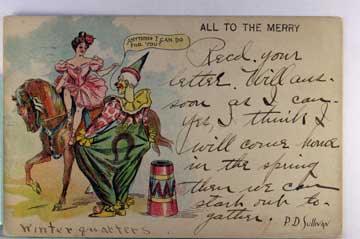 ALL TO THE MERRY
ANYTHING I CAN DO
FOR YOU?
Recd. your
letter. Will ans-
soon as I can-
Yes I think I
will come home
in the spring
then we can
start out to-
gather.
P.D. Sullivan
Winter quarters.